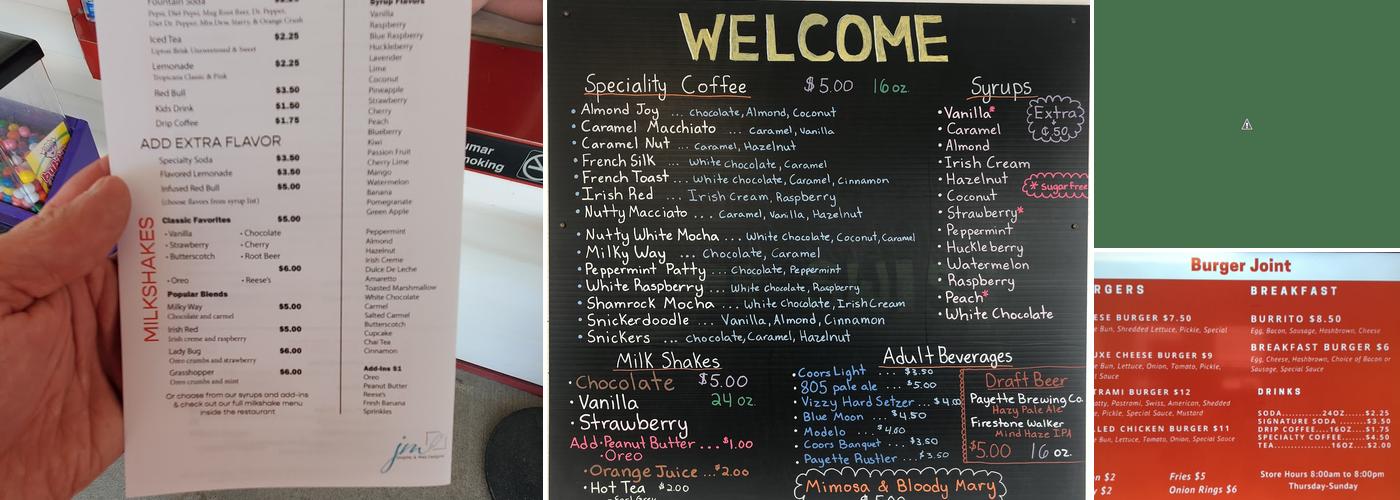 Fountain Soda $2.25
Pepsi, Diet Pepsi, Mug Root Beer, Dr. Pepper,
Diet Dr. Pepper, Mtn Dew, Starry, & Orange Crush
Iced Tea $2.25
Lipton Brisk Unsweetened & Sweet
Lemonade $2.25
Tropicana Classic & Pink
Red Bull $3.50
Kids Drink $1.50
Drip Coffee $1.75
ADD EXTRA FLAVOR
Specialty Soda $3.50
Flavored Lemonade $3.50
Infused Red Bull $5.00
(choose flavors from syrup list)
MILKSHAKES
Classic Favorites $5.00
• Vanilla • Chocolate
• Strawberry • Cherry
• Butterscotch • Root Beer
$6.00
• Oreo • Reese's
Popular Blends
Milky Way $5.00
Chocolate and carmel
Irish Red $5.00
Irish creme and raspberry
Lady Bug $6.00
Oreo crumbs and strawberry
Grasshopper $6.00
Oreo crumbs and mint
Or choose from our syrups and add-ins
& check out our full milkshake menu
inside the restaurant
Syrup Flavors
Vanilla
Raspberry
Blue Raspberry
Huckleberry
Lavender
Lime
Coconut
Pineapple
Strawberry
Cherry
Peach
Blueberry
Kiwi
Passion Fruit
Cherry Lime
Mango
Watermelon
Banana
Pomegranate
Green Apple
Peppermint
Almond
Hazelnut
Irish Creme
Dulce De Leche
Amaretto
Toasted Marshmallow
White Chocolate
Carmel
Salted Carmel
Butterscotch
Cupcake
Chai Tea
Cinnamon
Add-Ins $1
Oreo
Peanut Butter
Reese's
Fresh Banana
Sprinkles
jm
umar
moking
WELCOME
Speciality Coffee $5.00 16oz
• Almond Joy ... Chocolate, Almond, Coconut
• Caramel Macchiato ... Caramel, Vanilla
• Caramel Nut ... Caramel, Hazelnut
• French Silk ... White Chocolate, Caramel
• French Toast ... White chocolate, Caramel, Cinnamon
• Irish Red ... Irish Cream, Raspberry
• Nutty Macciato ... Caramel, Vanilla, Hazelnut
• Nutty White Mocha ... White Chocolate, Coconut, Caramel
• Milky Way ... Chocolate, Caramel
• Peppermint Patty ... Chocolate, Peppermint
• White Raspberry ... White Chocolate, Raspberry
• Shamrock Mocha ... White Chocolate, Irish Cream
• Snickerdoodle ... Vanilla, Almond, Cinnamon
• Snickers ... chocolate, Carmel, Hazelnut
Syrups
Extra
¢.50
• Vanilla*
• Caramel
• Almond
• Irish Cream
• Hazelnut
* Sugar free
• Coconut
• Strawberry*
• Peppermint
• Huckleberry
• Watermelon
• Raspberry
• Peach*
• White Chocolate
Milk Shakes
• Chocolate $5.00
• Vanilla 24 oz.
• Strawberry
Add-Peanut Butter ... $1.00
• Oreo
• Orange Juice ... $2.00
• Hot Tea $2.00
Adult Beverages
• Coors Light ... $3.50
• 805 pale ale ... $5.00
• Vizzy Hard Setzer ... $4.00
• Blue Moon ... $4.50
• Modelo ... $4.00
• Coors Banquet ... $3.50
• Payette Rustler ... $3.50
Draft Beer
Payette Brewing Co.
Hazy Pale Ale
Firestone Walker
Mind Haze IPA
$5.00 16 oz.
Mimosa & Bloody Mary
Burger Joint
RGERS
ESE BURGER $7.50
e Bun, Shredded Lettuce, Pickle, Special
UXE CHEESE BURGER $9
e Bun, Lettuce, Tomato, Onion, Tomato, Pickle,
t Sauce
TRAMI BURGER $12
atty, Pastrami, Swiss, American, Shedded
e, Pickle, Special Sauce, Mustard
LLED CHICKEN BURGER $11
e Bun, Lettuce, Tomato, Onion, Special Sauce
n $2 Fries $5
y $2 Onion Rings $6
BREAKFAST
BURRITO $8.50
Egg, Bacon, Sausage, Hashbrown, Cheese
BREAKFAST BURGER $6
Egg, Cheese, Hashbrown, Choice of Bacon or
Sausage, Special Sauce
DRINKS
SODA............24OZ......$2.25
SIGNATURE SODA ........$3.50
DRIP COFFEE....16OZ...$1.75
SPECIALTY COFFEE.......$4.50
TEA...............16OZ......$2.00
Store Hours 8:00am to 8:00pm
Thursday-Sunday